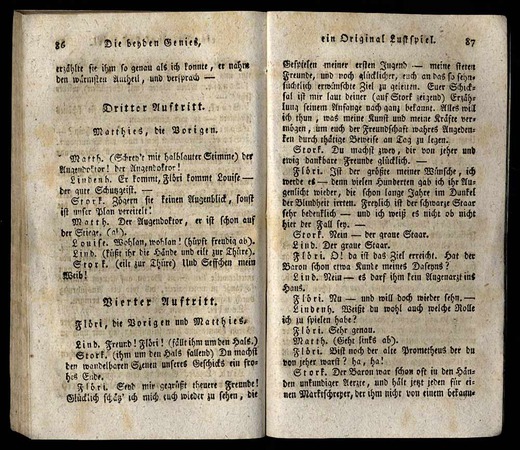 86 Die beyden Genies,
erzählte sie ihm so genau als ich konnte, er nahm
den wärmsten Antheil, und versprach —
Dritter Auftritt.
Matthies, die Vorigen.
Matth. (Schrey't mir halblauter Stimme) der
Augendoktor! der Augendoktor!
Lindenh. Er kommt, Flöri kommt Louise —
der gute Schutzgeist. —
Stork. Zögern sie keinen Augenblick, sonst
ist unser Plan vereitelt!
Matth. Der Augendoktor, er ist schon auf
der Stiege. (ab).
Louise. Wohlan, wohlan! (hüpft freudig ab).
Lind. (küßt ihr die Hände und eilt zur Thüre).
Stork. (eilt zur Thüre) Und Seffchen mein
Weib!
Vierter Auftritt.
Flöri, die Vorigen und Matthies.
Lind. Freund! Flöri! (fällt ihm um den Hals.)
Stork. (ihm um den Hals fallend) Du machst
den wandelbaren Szenen unseres Geschicks ein fro-
hes Ende.
Flöri. Seyd mir gegrüßt theuere Freunde!
Glücklich schäz' ich mich euch wieder zu sehen, die
ein Original Lustspiel. 87
Gespielen meiner ersten Jugend — meine steten
Freunde, und noch glücklicher, euch an das so sehn-
suchtlich erwünschte Ziel zu geleiten. Euer Schick-
sal ist mir laut deiner (auf Stork zeigend) Erzäh-
lung seinem Anfange nach ganz bekannt. Alles will
ich thun, was meine Kunst und meine Kräfte ver-
mögen, um euch der Freundschaft wahres Angeden-
ken durch thätige Beweise an Tag zu legen.
Stork. Du machst zwey, die von jeher und
ewig dankbare Freunde glücklich. —
Flöri. Ist der größte meiner Wünsche, ich
werde es — denn vielen Hunderten gab ich ihr Au-
genlicht wieder, die schon lange Jahre im Dunkel
der Blindheit irrten. Freylich ist der schwarze Staar
sehr bedenklich — und ich weiß es nicht ob nicht
hier der Fall sey. —
Stork. Nein — der graue Staar.
Lind. Der graue Staar.
Flöri. O! da ist das Ziel erreicht. Hat der
Baron schon etwa Kunde meines Daseyns?
Lind. Nein — es darf ihm kein Augenarzt ins
Haus.
Flöri. Nu — und will doch wieder sehn. —
Lindenh. Weißt du wohl auch welche Rolle
ich zu spielen habe?
Flöri. Sehr genau.
Matth. (Geht links ab).
Flöri. Bist noch der alte Prometheus der du
von jeher warst? ha, ha!
Stork. Der Baron war schon oft in den Hän-
den unkundiger Aerzte, und hält jetzt jeden für ei-
nen Marktschreyer, der ihm nicht von einem bekann-